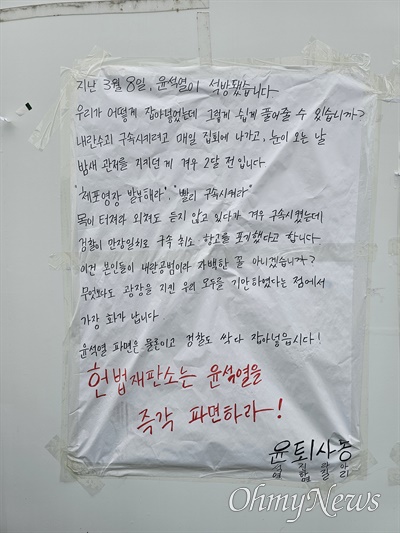 지난 3월 8일, 윤석열이 석방됐습니다
우리가 어떻게 잡아넣었는데 그렇게 쉽게 풀어줄 수 있습니까?
내란수괴 구속시키려고 매일 집회에 나가고, 눈이 오는 날
밤새 관저를 지키던 게 겨우 2달 전입니다
"체포영장 발부해라", "빨리 구속시켜라"
목이 터져라 외쳐도 듣지 않고 있다가 겨우 구속시켰는데
검찰이 만장일치로 구속 취소 항고를 포기했다고 합니다
이건 본인들이 내란공범이라 자백한 꼴 아니겠습니까?
무엇보다도 광장을 지킨 우리 모두를 기만하였다는 점에서
가장 화가 납니다
윤석열 파면은 물론이고 검찰도 싹 다 잡아넣읍시다!
헌법재판소는 윤석열을
즉각 파면하라!
윤퇴사동
OhmyNews